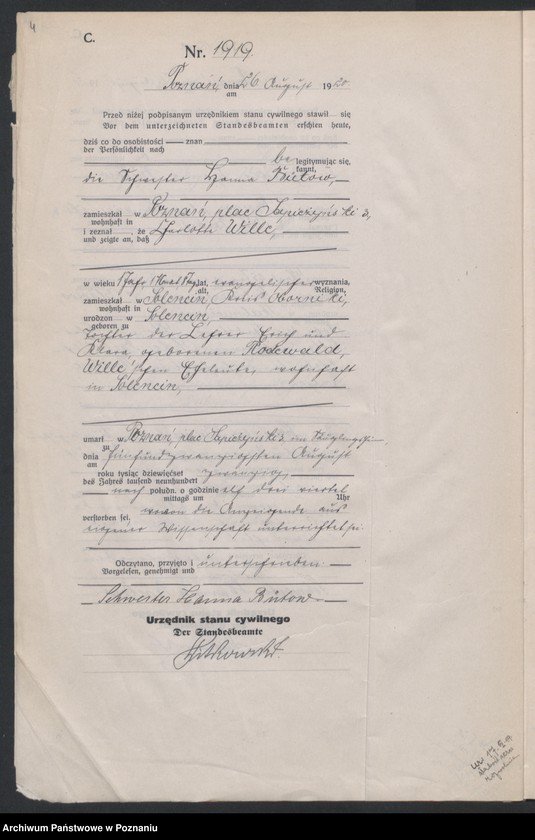 4
C.
Nr. 1919
Poznań, dnia 26 August 1920
am
Przed niżej podpisanym urzędnikiem stanu cywilnego stawił się
Vor dem unterzeichneten Standesbeamten erschien heute,
dziś co do osobistości — znan
der Persönlichkeit nach
be legitymując się,
kannt,
die Schwester Hanna Bütow,
zamieszkał w Poznań, plac
wohnhaft in
i zeznał, że Charlotte Wille,
und zeigte an, daß
w wieku 1 Jahr 1 Monat lat, evangelischer wyznania,
alt, Religion,
zamieszkał w Kreis Oborniki,
wohnhaft in
urodzon w
geboren zu
Tochter der Lehrer Erich und
Klara, geborenen Rodewald,
Wille'schen Eheleute, wohnhaft
in
umarł w Poznań, plac im
zu
dnia fünfundzwanzigsten August
am
roku tysiąc dziewięćset zwanzig,
des Jahres tausend neunhundert
nach połudn. o godzinie elf drei viertel
mittags um Uhr
verstorben sei. wovon die Anzeigende aus
eigener Wissenschaft unterrichtet sei.
Odczytano, przyjęto i unterschrieben
Vorgelesen, genehmigt und
Schwester Hanna Bütow
Urzędnik stanu cywilnego
Der Standesbeamte
Archiwum Państwowe w Poznaniu